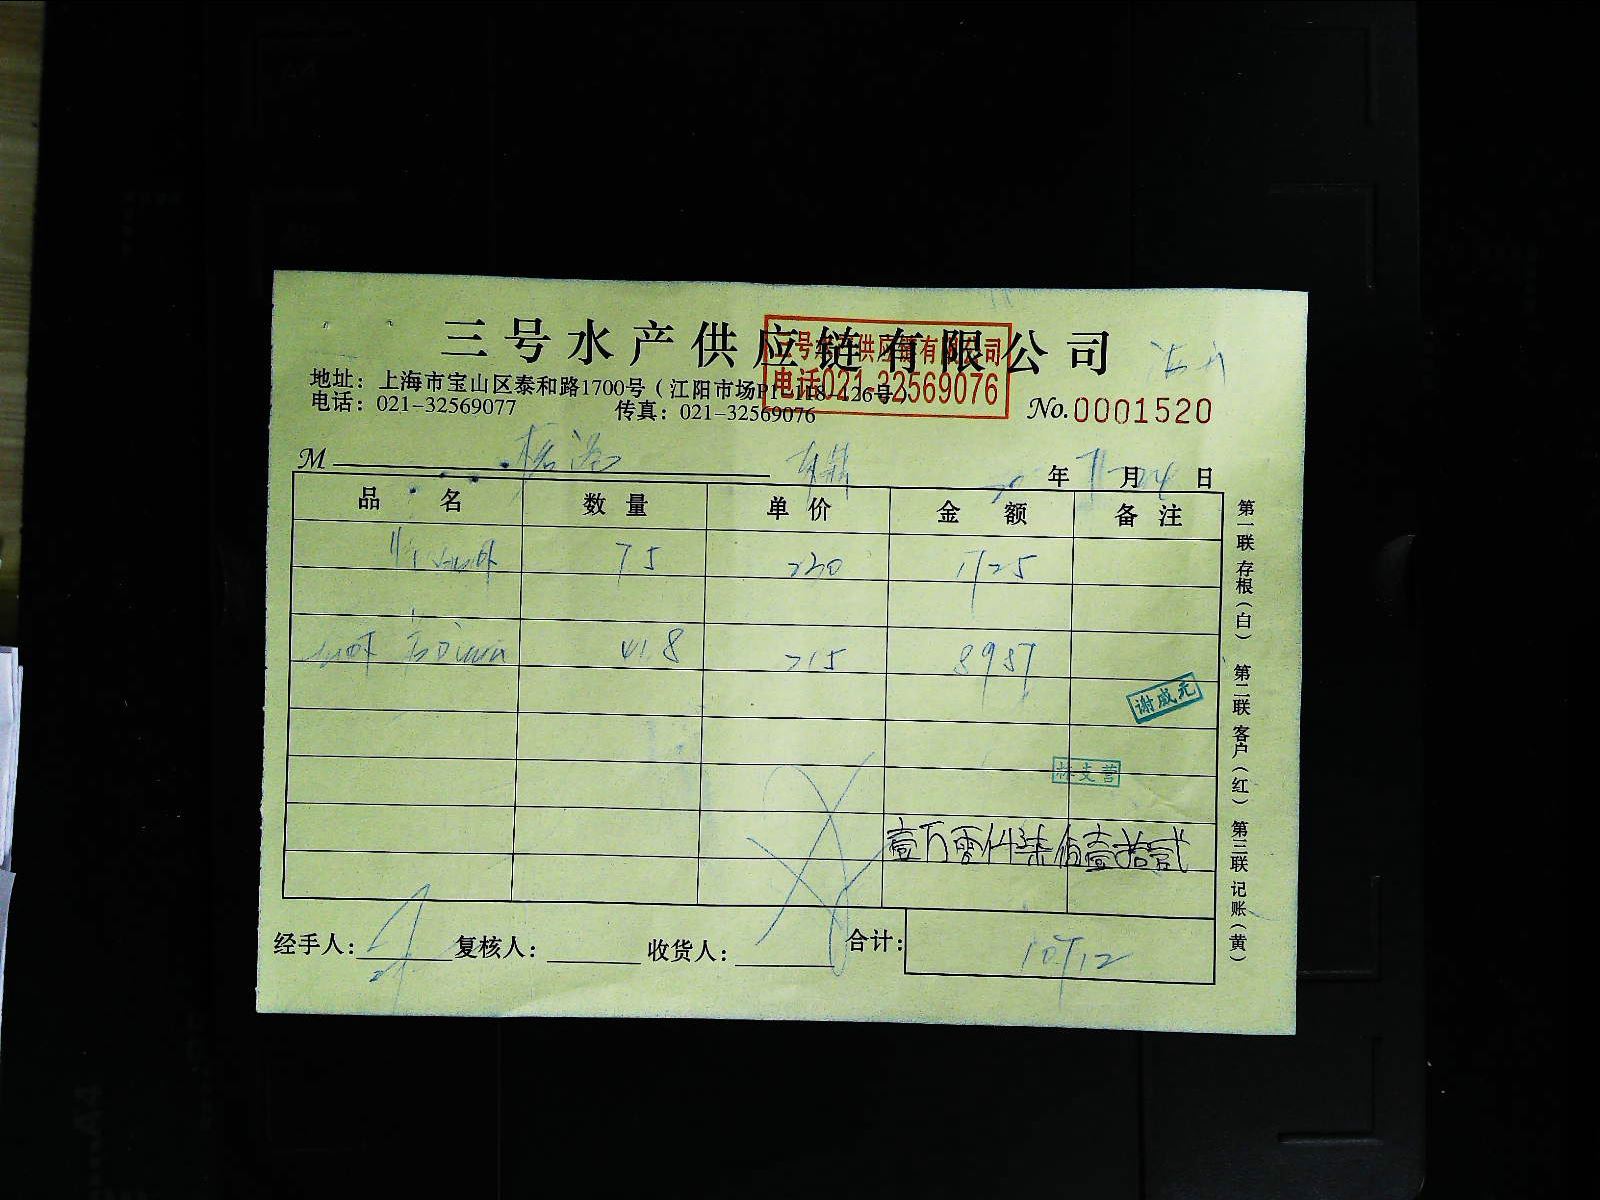 三号水产供应链有限公司
供应链有限公司
电话021-32569076
地址：上海市宝山区泰和路1700号（江阳市场P1-118-126号）
电话：021-32569077 传真：021-32569076
No.0001520
M 年 11 月 24 日
品名 数量 单价 金额 备注
75 230 1725
41.8 215 8987
谢成元
林支营
壹万零仟柒佰壹拾贰
经手人： 复核人： 收货人： 合计： 10712
第一联 存根（白） 第二联 客户（红） 第三联 记账（黄）